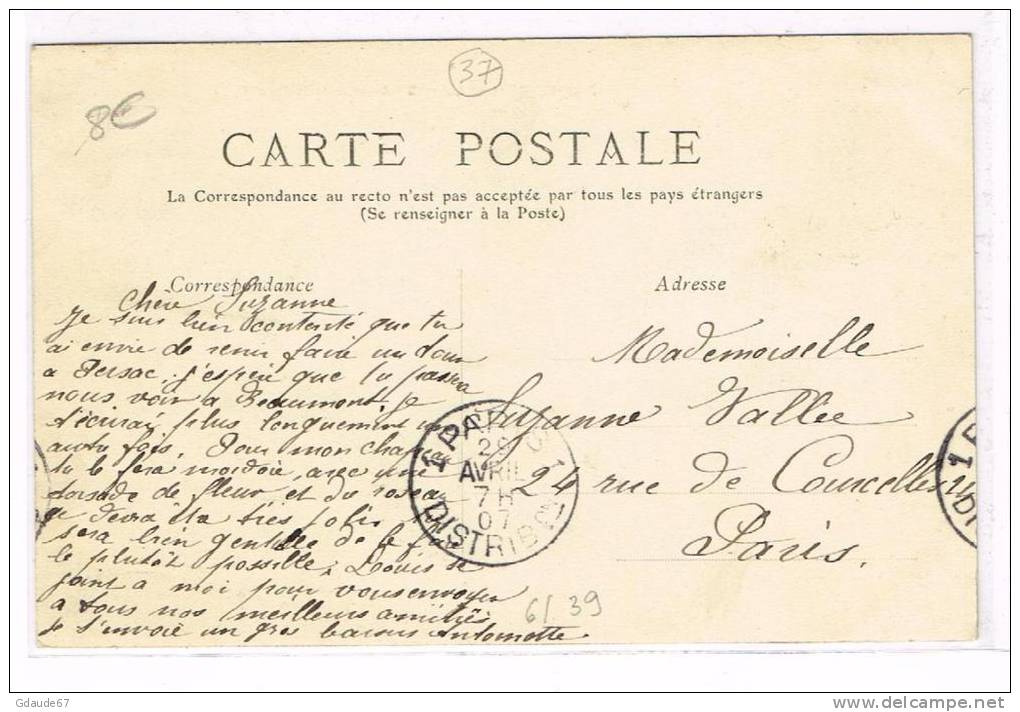 37
8€
CARTE POSTALE
La Correspondance au recto n'est pas acceptée par tous les pays étrangers
(Se renseigner à la Poste)
Correspondance
Adresse
Chère Suzanne
Je suis bien contente que tu
ai envie de venir faire un tour
a Persac, j'espère que tu passera
nous voir a Beaumont, je
t'écrirai plus longuement une
autre fois. Pour mon chapeau
tu le fera mordoré avec une
torsade de fleur et du roseau
ce devra être très joli, tu
sera bien gentille de le faire
le plutôt possible, Louis se
joint a moi pour vous envoyer
a tous nos meilleurs amitiés
Je t'envoie un gros baisers Antoinette
Mademoiselle
Suzanne Vallée
24 rue de Courcelles
Paris.
1 PARIS
28
AVRIL
7 H
07
DISTRIBON
1
DI
6/39
Gdaude67
www.delcampe.net